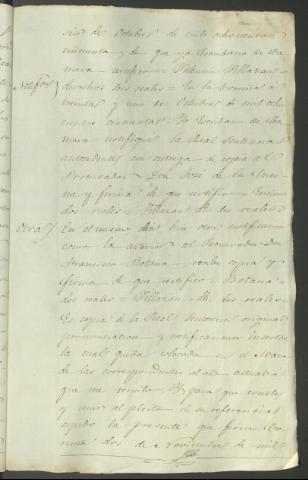 seis de Octubre de mil ochocientos
cincuenta, de que yo Escribano de Ca
mara certifico = Valentin Villazan =
derechos seis reales = En la Coruña á
treinta y uno de Octubre de mil ocho
cientos cincuenta. Yo Escribano de Ca
mara notifiqué la Real Sentencia
antecedente con entrega de copia al
Procurador Don José de la
y firma de que certifico =
dos reales = Villazan = dr. dos reales =
Otra En el mismo dia hice otra notificacion
como la anterior al Procurador Don
Francisco Botana recibe copia y
firma de que certifico = Botana =
dos reales = Villazan = dr. dos reales =
Es copia de la Real Sentencia original
pronunciacion y notificaciones insertas
la cual queda colocada en el
de las correspondientes al año actual á
que me remito. Y para que conste
y unir al pleito de su referencia
espido la presente que firmo Co
ruña dos de Noviembre de mil